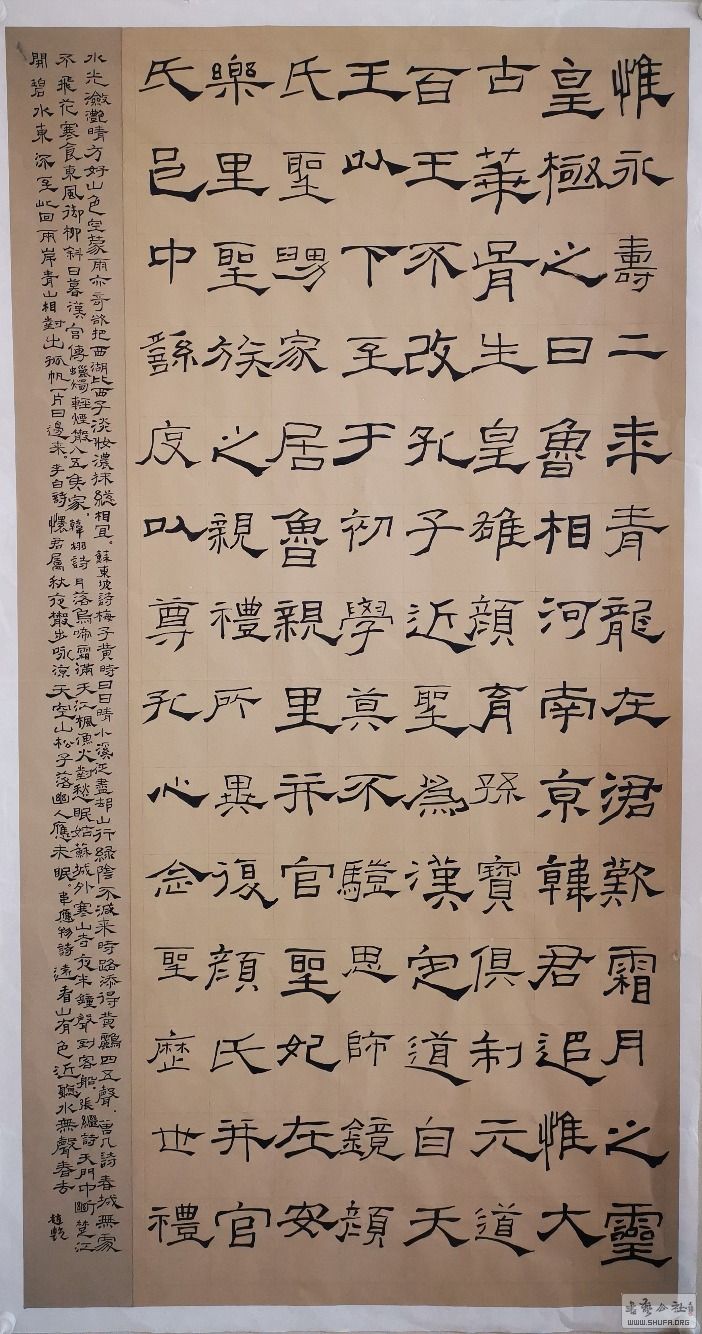 惟永壽二年青龍在涒歎霜月之靈
皇極之日魯相河南京韓君追惟大
古華胥生皇雄顏育孫寶俱制元道
百王不改孔子近聖為漢定道自天
王以下至于初學莫不驥思師鏡顏
氏聖舅家居魯親里并官聖妃在安
樂里聖族之親禮所異復顏氏并官
氏邑中繇度以尊孔心念聖歷世禮
水光瀲灧晴方好山色空蒙雨亦奇欲把西湖比西子淡妝濃抹總相宜。蘇東坡詩梅子黄時日日晴小溪泛盡却山行綠陰不減来時路添得黄鸝四五聲。曾几詩春城無處
不飛花寒食東風御柳斜日暮漢宮傳蠟燭輕煙散入五侯家。韓翃詩月落烏啼霜滿天江楓漁火對愁眠姑蘇城外寒山寺夜半鐘聲到客船。張繼詩天門中斷楚江
開碧水東流至此回兩岸青山相對出孤帆一片日邊来。李白詩懷君屬秋夜散步咏涼天空山松子落幽人應未眠。韋應物詩遠看山有色近聽水無聲春去
WWW.SHUFA.ORG